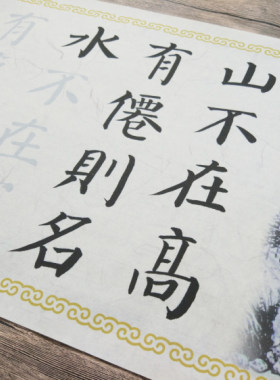 山不在高
有僊則名
水不在
有